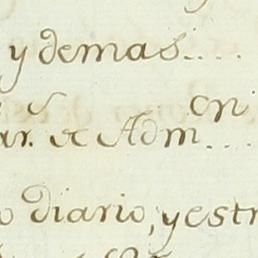 y demas.....
ar. de Adm.on....
o diario, y estr